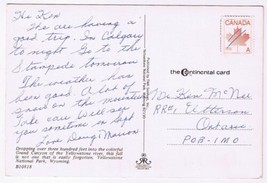 The Ken
We are having a
good trip. In Calgary
to night Go to the
Stampede tomorrow
The weather has
been good. A lot of
snow on the mountains
take care. Will see
you sometime in Sept
Love Doug & Marion
Dropping over three hundred feet into the colorful
Grand Canyon of the Yellowstone river, this fall
is not one that is easily forgotten. Yellowstone
National Park, Wyoming.
the continental card
CANADA
A
Mr Ken McNee
RR#1,
Ontario